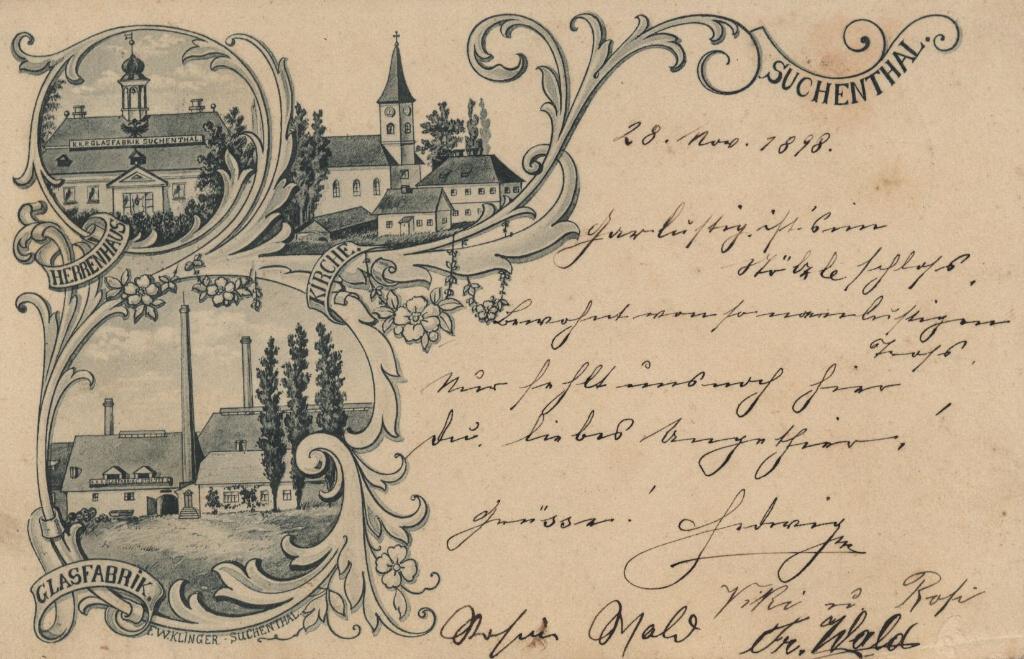 SUCHENTHAL.
28. Nov. 1898.
K.K.P. GLASFABRIK SUCHENTHAL
HERRENHAUS
KIRCHE.
Gar lustig ist's im
Stölzle schloss,
Bewohnt von so narrlustigem
Tross.
Nur fehlt uns noch hier,
Du, liebes Ungethier.
Grüsse! Hedwig
Viki u Rosi
Wald Fr. Wald
GLASFABRIK.
F. W. KLINGER - SUCHENTHAL